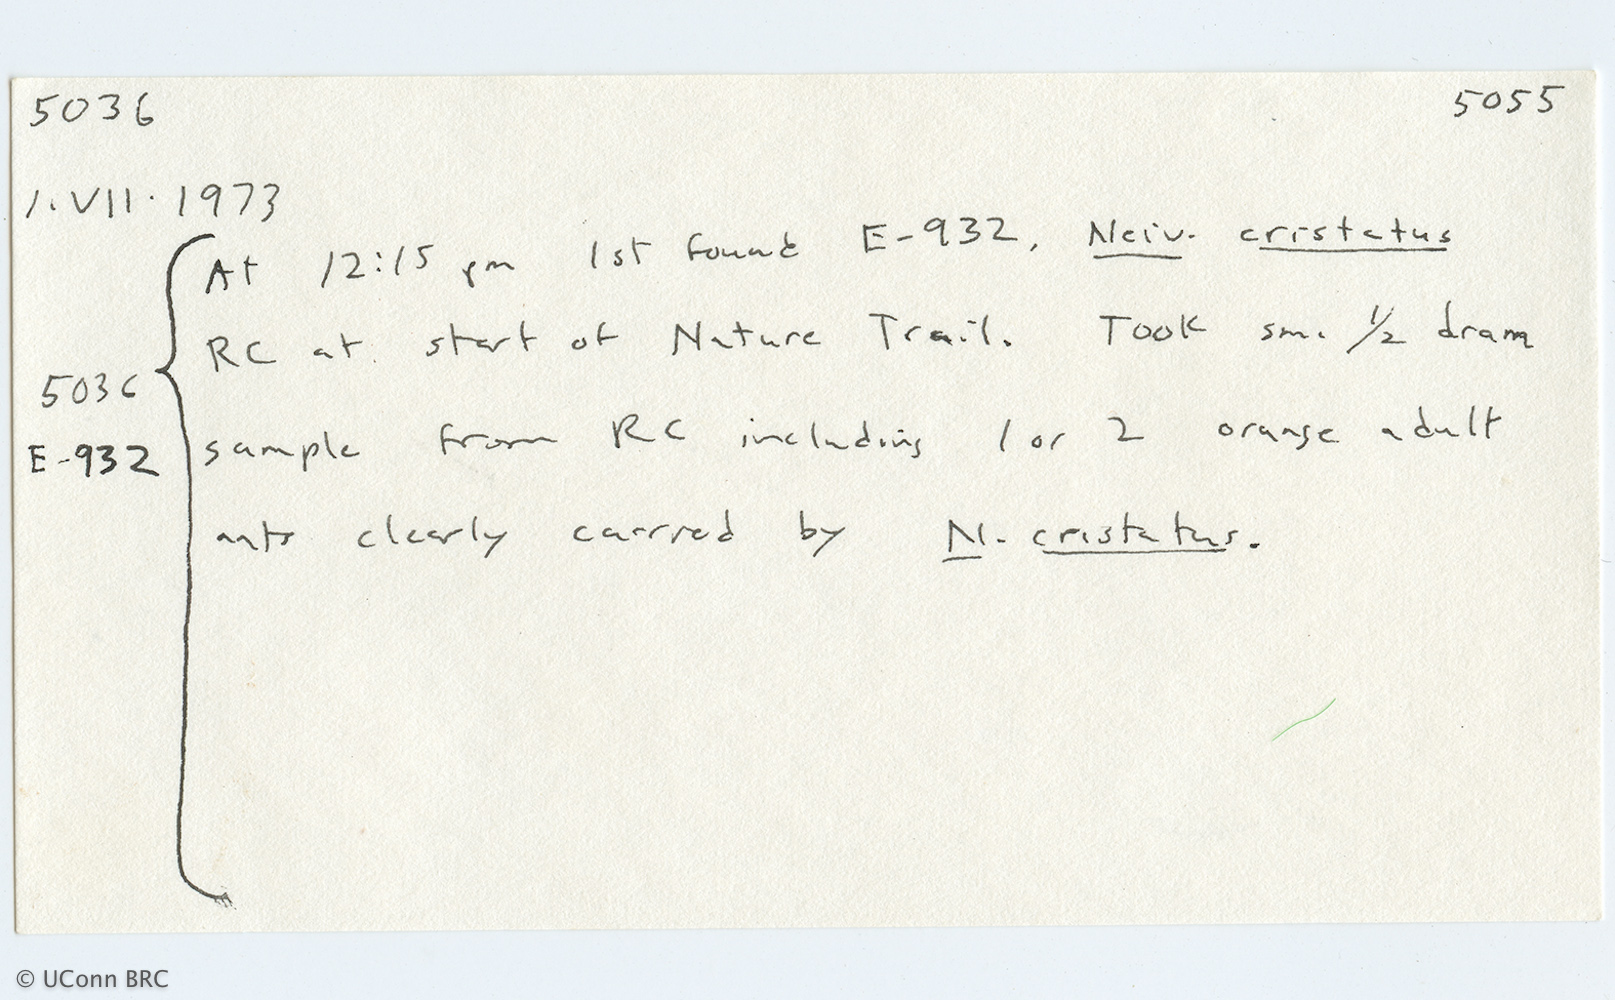 5036 5055
1.VII.1973
At 12:15 pm 1st found E-932, Neiv. cristatus
RC at start of Nature Trail. Took sm. 1/2 dram
5036
E-932
sample from RC including 1 or 2 orange adult
ants clearly carried by N. cristatus.
© UConn BRC